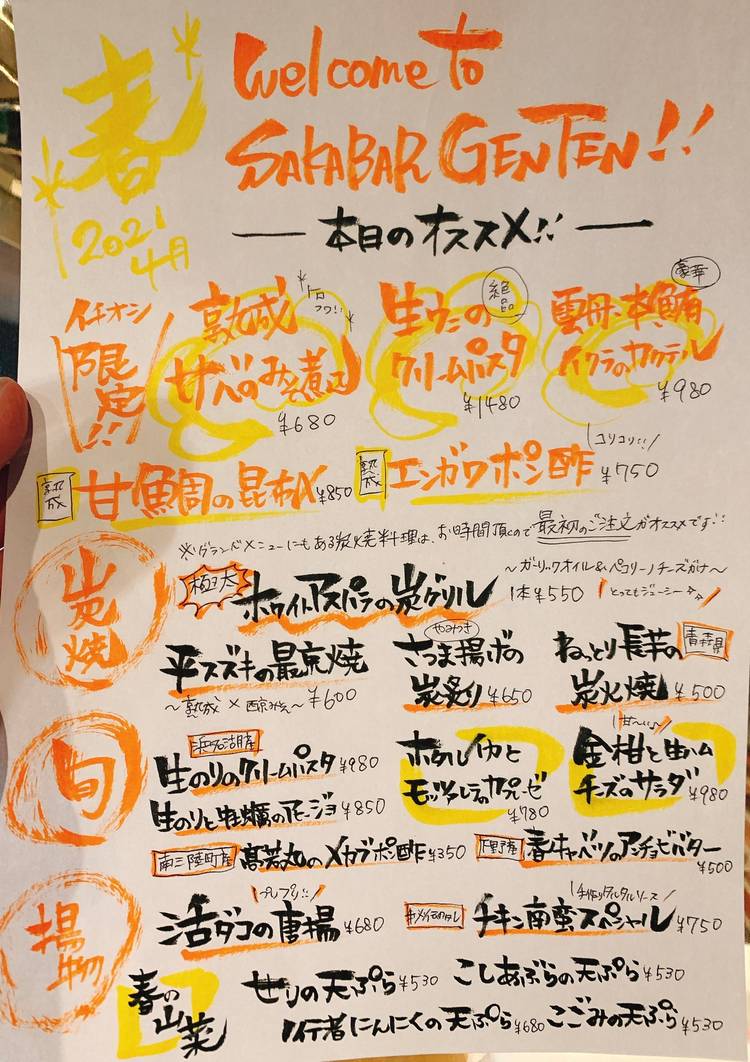 春
2021
4月
Welcome to
SAKABAR GENTEN!!
本日のオススメ!!
イチオシ
限定!!
トロフワ!!
熟成
サバのみそ煮込
¥680
絶品
生ウニの
クリームパスタ
¥1480
豪華
雲丹・本鮪・
イクラのカクテル
¥980
熟成 甘鯛の昆布〆 ¥850
コリコリ!!
熟成 エンガワポン酢 ¥750
※グランドメニューにもある炭焼料理は、お時間頂くので最初のご注文がオススメです!!
炭焼
〜ガーリックオイル&ペコリーノチーズがけ〜
極太 ホワイトアスパラの炭グリル 1本¥550
とってもジューシー
平スズキの最京焼
〜熟成×西京みそ〜 ¥600
やみつき
さつま揚げの
炭炙り ¥650
ねっとり長芋の 青森県
炭火焼 ¥500
旬
浜名湖産
生のりのクリームパスタ ¥980
生のりと牡蠣のアヒージョ ¥850
ホタルイカと
モッツァレラのカプレーゼ
¥780
甘〜い
金柑と生ハム
チーズのサラダ ¥980
南三陸町産 高若丸のメカブポン酢 ¥350
春キャベツのアンチョビバター
¥500
揚物
プレプリ!!
活ダコの唐揚 ¥680
手作りタルタルソース
チキン南蛮スペシャル ¥750
春の
山菜
せりの天ぷら ¥530
こしあぶらの天ぷら ¥530
行者にんにくの天ぷら ¥680
こごみの天ぷら ¥530